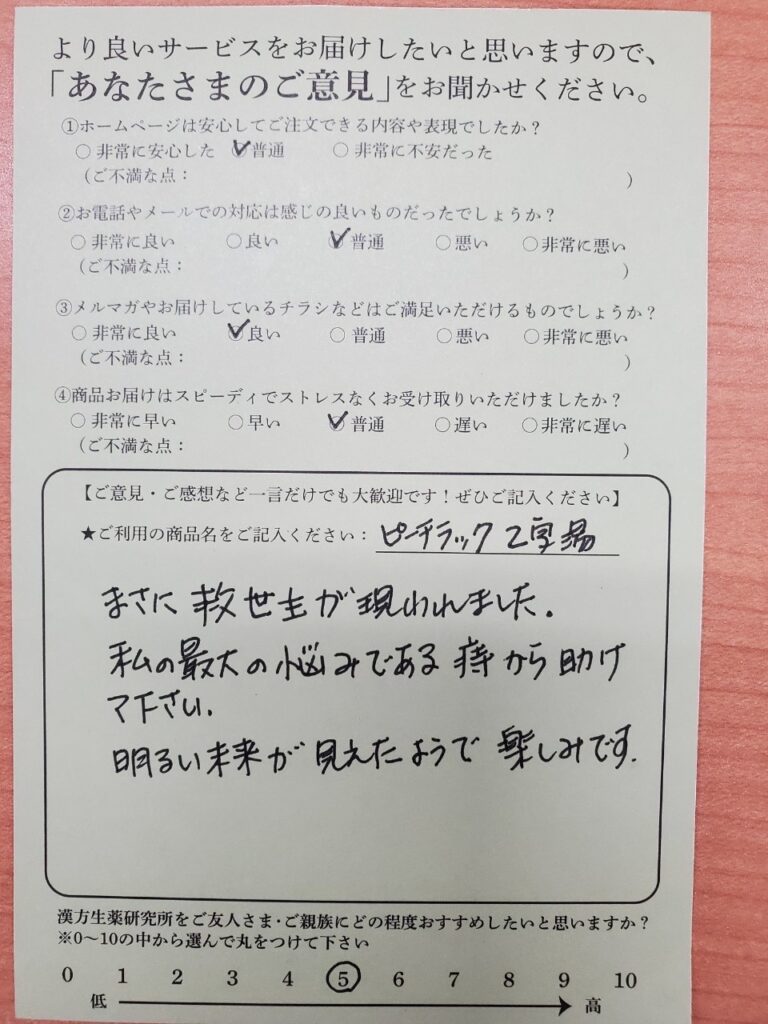 より良いサービスをお届けしたいと思いますので、
「あなたさまのご意見」をお聞かせください。
①ホームページは安心してご注文できる内容や表現でしたか？
○ 非常に安心した ○普通 ○ 非常に不安だった
（ご不満な点： ）
②お電話やメールでの対応は感じの良いものだったでしょうか？
○ 非常に良い ○良い ○普通 ○悪い ○非常に悪い
（ご不満な点： ）
③メルマガやお届けしているチラシなどはご満足いただけるものでしょうか？
○ 非常に良い ○良い ○ 普通 ○悪い ○非常に悪い
（ご不満な点： ）
④商品お届けはスピーディでストレスなくお受け取りいただけましたか？
○ 非常に早い ○早い ○普通 ○遅い ○非常に遅い
（ご不満な点： ）
【ご意見・ご感想など一言だけでも大歓迎です！ぜひご記入ください】
★ご利用の商品名をご記入ください： ピーチラック乙字湯
まさに救世主が現われました.
私の最大の悩みである痔から助け
て下さい.
明るい未来が見えたようで楽しみです.
漢方生薬研究所をご友人さま・ご親族にどの程度おすすめしたいと思いますか？
※0〜10の中から選んで丸をつけて下さい
0 1 2 3 4 5 6 7 8 9 10
低 高